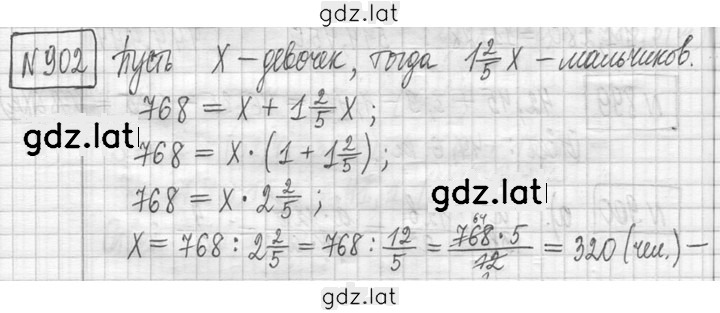 gdz.lat
№902 Пусть x - девочек, тогда 1 2/5 x - мальчиков.
768 = x + 1 2/5 x ;
gdz.lat
768 = x · (1 + 1 2/5) ;
768 = x · 2 2/5 ;
gdz.lat
x = 768 : 2 2/5 = 768 : 12/5 = 768 · 5 / 12 = 320 (чел.) —
gdz.lat